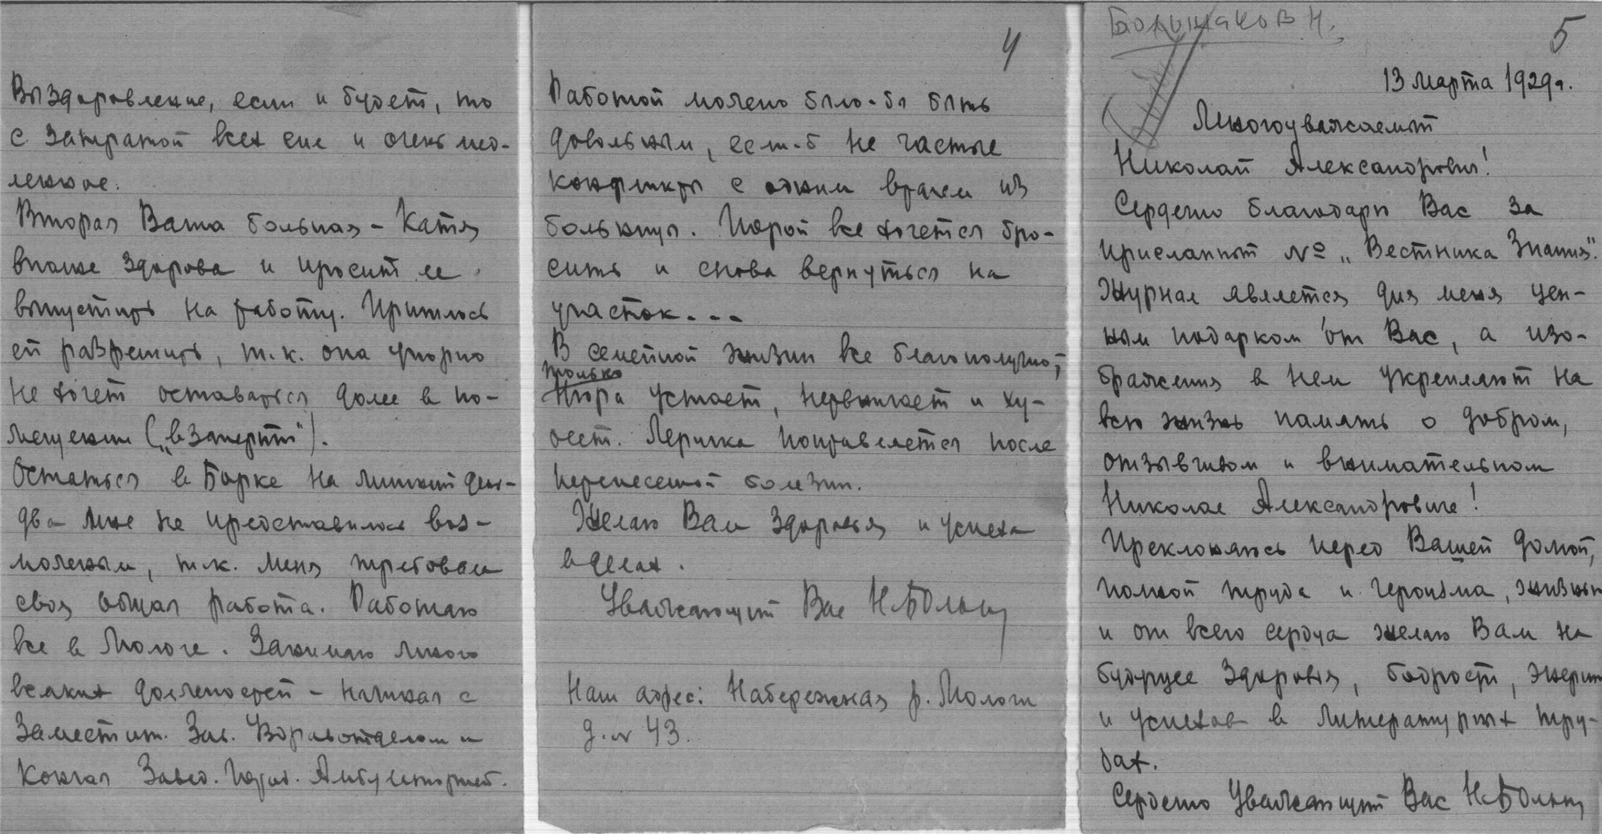 Выздоровление, если и будет, то
с затратой всех сил и очень мед-
ленное.
Вторая Ваша больная – Катя
вполне здорова и просит ее
выпустить на работу. Пришлось
ей разрешить, т.к. она упорно
не хочет оставаться долее в по-
мещении („взаперти").
Остаться в Борке на лишний день-
два мне не представилось воз-
можным, т.к. меня требовала
своя общая работа. Работаю
все в Мологе. Занимаю много
всяких должностей – начиная с
Заместит. Зав. Здравотделом и
кончая Завед. Амбулаторией.
4
Работой можно было-бы быть
довольным, если-б не частые
конфликты с одним врачом из
больницы. Порой все хочется бро-
сить и снова вернуться на
участок...
В семейной жизни все благополучно,
только
Нюра устает, нервничает и ху-
деет. Лерочка поправляется после
перенесенной болезни.
Желаю Вам здоровья и успеха
в делах.
Уважающий Вас Н. Больш
Наш адрес: Набережная р. Мологи
д. № 43.
Большаков Н.
5
13 марта 1929 г.
Многоуважаемый
Николай Александрович!
Сердечно благодарю Вас за
присланный № „Вестника Знания".
Журнал является для меня цен-
ным подарком от Вас, а изо-
бражения в нем укрепляют на
всю жизнь память о добром,
отзывчивом и внимательном
Николае Александровиче!
Преклоняюсь перед Вашей долгой,
полной труда и героизма, жизнью
и от всего сердца желаю Вам на
будущее здоровья, бодрости, энергии
и успехов в литературных тру-
дах.
Сердечно Уважающий Вас Н. Больш